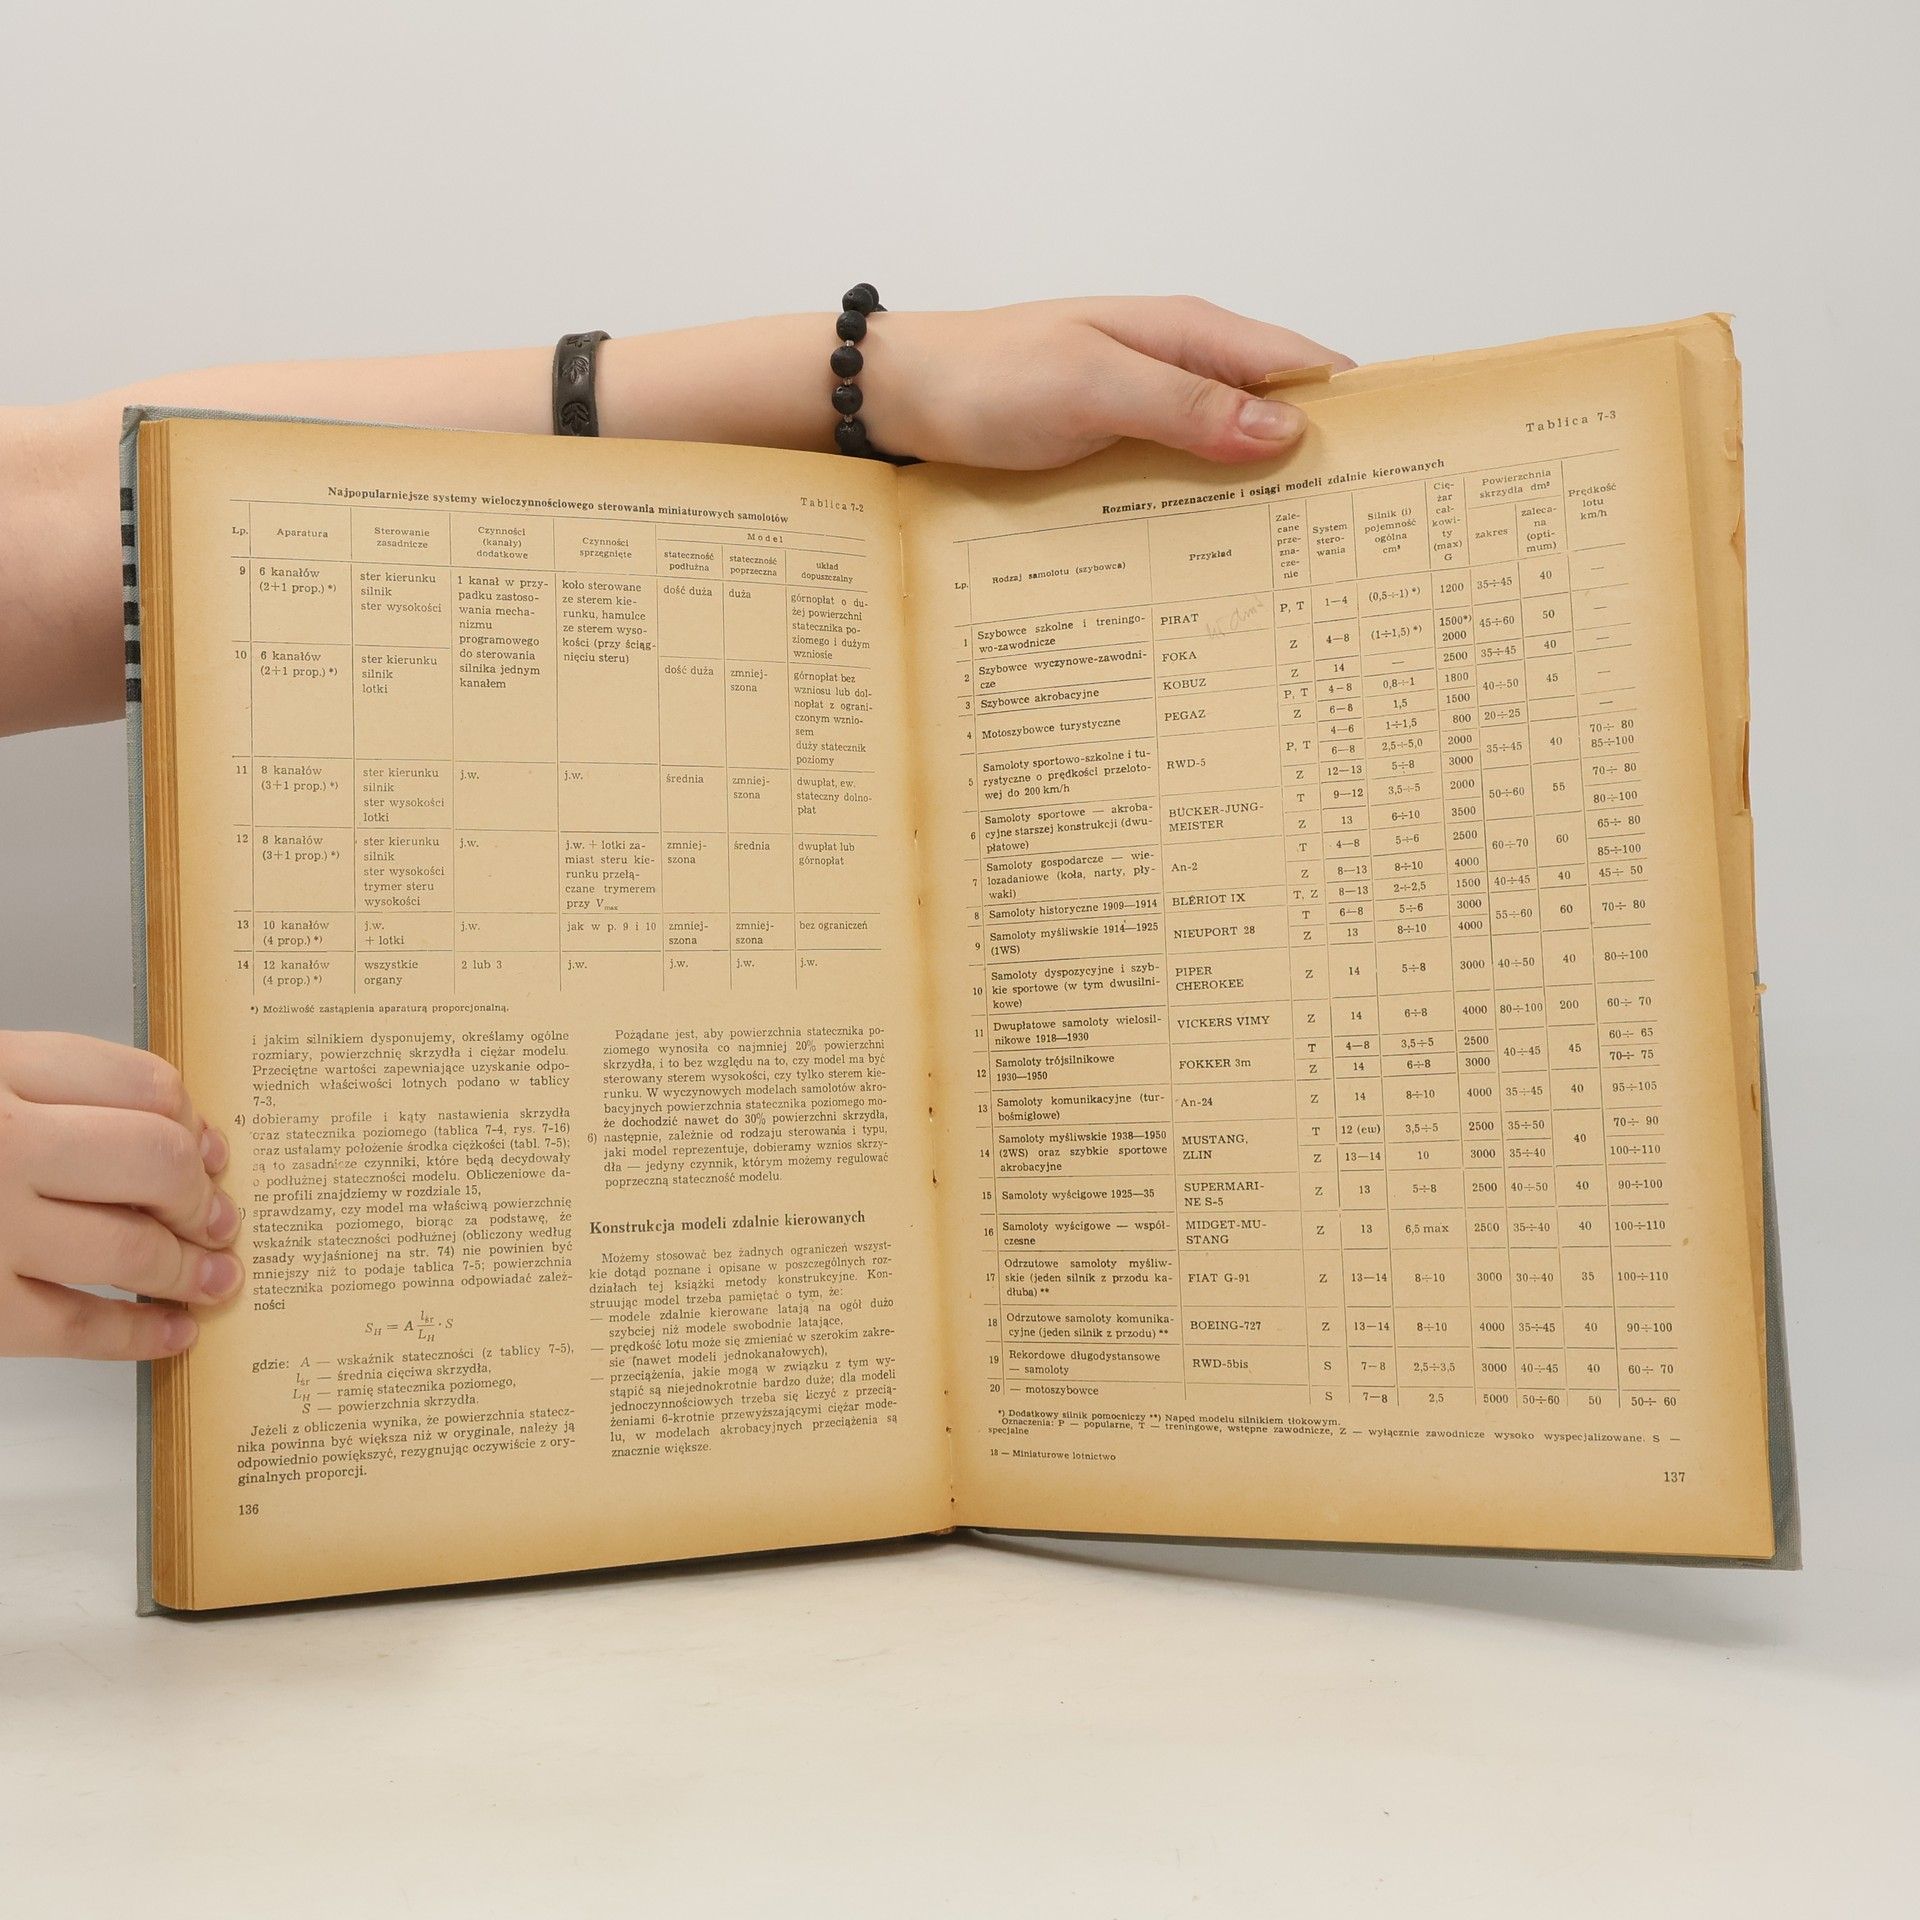 Tablica 7-2
Najpopularniejsze systemy wieloczynnościowego sterowania miniaturowych samolotów
Lp. Aparatura Sterowanie zasadnicze Czynności (kanały) dodatkowe Czynności sprzęgnięte Model
stateczność podłużna stateczność poprzeczna układ dopuszczalny
9 6 kanałów (2+1 prop.) *) ster kierunku silnik ster wysokości 1 kanał w przypadku zastosowania mechanizmu programowego do sterowania silnika jednym kanałem koło sterowane ze sterem kierunku, hamulce ze sterem wysokości (przy ściągnięciu steru) dość duża duża górnopłat o dużej powierzchni statecznika poziomego i dużym wzniosie
10 6 kanałów (2+1 prop.) *) ster kierunku silnik lotki dość duża zmniejszona górnopłat bez wzniosu lub dolnopłat z ograniczonym wzniosem duży statecznik poziomy
11 8 kanałów (3+1 prop.) *) ster kierunku silnik ster wysokości lotki j.w. j.w. średnia zmniejszona dwupłat, ew. stateczny dolnopłat
12 8 kanałów (3+1 prop.) *) ster kierunku silnik ster wysokości trymer steru wysokości j.w. j.w. + lotki zamiast steru kierunku przełączane trymerem przy V max zmniejszona średnia dwupłat lub górnopłat
13 10 kanałów (4 prop.) *) j.w. + lotki j.w. jak w p. 9 i 10 zmniejszona zmniejszona bez ograniczeń
14 12 kanałów (4 prop.) *) wszystkie organy 2 lub 3 j.w. j.w. j.w. j.w.
*) Możliwość zastąpienia aparaturą proporcjonalną.
i jakim silnikiem dysponujemy, określamy ogólne
rozmiary, powierzchnię skrzydła i ciężar modelu.
Przeciętne wartości zapewniające uzyskanie odpo-
wiednich właściwości lotnych podano w tablicy
7-3,
4) dobieramy profile i kąty nastawienia skrzydła
oraz statecznika poziomego (tablica 7-4, rys. 7-16)
oraz ustalamy położenie środka ciężkości (tabl. 7-5);
są to zasadnicze czynniki, które będą decydowały
o podłużnej stateczności modelu. Obliczeniowe da-
ne profili znajdziemy w rozdziale 15,
) sprawdzamy, czy model ma właściwą powierzchnię
statecznika poziomego, biorąc za podstawę, że
wskaźnik stateczności podłużnej (obliczony według
zasady wyjaśnionej na str. 74) nie powinien być
mniejszy niż to podaje tablica 7-5; powierzchnia
statecznika poziomego powinna odpowiadać zależ-
ności
S_H = A l_śr / L_H · S
gdzie: A — wskaźnik stateczności (z tablicy 7-5),
l_śr — średnia cięciwa skrzydła,
L_H — ramię statecznika poziomego,
S — powierzchnia skrzydła.
Jeżeli z obliczenia wynika, że powierzchnia statecz-
nika powinna być większa niż w oryginale, należy ją
odpowiednio powiększyć, rezygnując oczywiście z ory-
ginalnych proporcji.
136
Pożądane jest, aby powierzchnia statecznika po-
ziomego wynosiła co najmniej 20% powierzchni
skrzydła, i to bez względu na to, czy model ma być
sterowany sterem wysokości, czy tylko sterem kie-
runku. W wyczynowych modelach samolotów akro-
bacyjnych powierzchnia statecznika poziomego mo-
że dochodzić nawet do 30% powierzchni skrzydła,
6) następnie, zależnie od rodzaju sterowania i typu,
jaki model reprezentuje, dobieramy wznios skrzy-
dła — jedyny czynnik, którym możemy regulować
poprzeczną stateczność modelu.
Konstrukcja modeli zdalnie kierowanych
Możemy stosować bez żadnych ograniczeń wszyst-
kie dotąd poznane i opisane w poszczególnych roz-
działach tej książki metody konstrukcyjne. Kon-
struując model trzeba pamiętać o tym, że:
— modele zdalnie kierowane latają na ogół dużo
szybciej niż modele swobodnie latające,
— prędkość lotu może się zmieniać w szerokim zakre-
sie (nawet modeli jednokanałowych),
— przeciążenia, jakie mogą w związku z tym wy-
stąpić są niejednokrotnie bardzo duże; dla modeli
jednoczynnościowych trzeba się liczyć z przecią-
żeniami 6-krotnie przewyższającymi ciężar mode-
lu, w modelach akrobacyjnych przeciążenia są
znacznie większe.
Tablica 7-3
Rozmiary, przeznaczenie i osiągi modeli zdalnie kierowanych
Lp. Rodzaj samolotu (szybowca) Przykład Zalecane przeznaczenie System sterowania Silnik (i) pojemność ogólna cm³ Ciężar całkowity (max) G Powierzchnia skrzydła dm² zakres zalecana (optimum) Prędkość lotu km/h
1 Szybowce szkolne i treningowo-zawodnicze PIRAT P, T 1—4 (0,5÷1) *) 1200 35÷45 40 —
2 Szybowce wyczynowe-zawodnicze FOKA Z 4—8 (1÷1,5) *) 1500*) 2000 45÷60 50 —
3 Szybowce akrobacyjne KOBUZ Z 14 — 2500 35÷45 40 —
4 Motoszybowce turystyczne PEGAZ P, T 4—8 0,8÷1 1800 40÷50 45 —
Z 6—8 1,5 1500
5 Samoloty sportowo-szkolne i turystyczne o prędkości przelotowej do 200 km/h RWD-5 P, T 4—6 1÷1,5 800 20÷25 —
6—8 2,5÷5,0 2000 35÷45 40 70÷80
Z 12—13 5÷8 3000 85÷100
6 Samoloty sportowe — akrobacyjne starszej konstrukcji (dwupłatowe) BÜCKER-JUNGMEISTER T 9—12 3,5÷5 2000 50÷60 55 70÷80
Z 13 6÷10 3500 80÷100
7 Samoloty gospodarcze — wielozadaniowe (koła, narty, pływaki) An-2 T 4—8 5÷6 2500 60÷70 60 65÷80
Z 8—13 8÷10 4000 85÷100
8 Samoloty historyczne 1909—1914 BLÉRIOT IX T, Z 8—13 2÷2,5 1500 40÷45 40 45÷50
9 Samoloty myśliwskie 1914—1925 (1WS) NIEUPORT 28 T 6—8 5÷6 3000 55÷60 60 70÷80
Z 13 8÷10 4000
10 Samoloty dyspozycyjne i szybkie sportowe (w tym dwusilnikowe) PIPER CHEROKEE Z 14 5÷8 3000 40÷50 40 80÷100
11 Dwupłatowe samoloty wielosilnikowe 1918—1930 VICKERS VIMY Z 14 6÷8 4000 80÷100 200 60÷70
12 Samoloty trójsilnikowe 1930—1950 FOKKER 3m T 4—8 3,5÷5 2500 40÷45 45 60÷65
Z 14 6÷8 3000 70÷75
13 Samoloty komunikacyjne (turbośmigłowe) An-24 Z 14 8÷10 4000 35÷45 40 95÷105
14 Samoloty myśliwskie 1938—1950 (2WS) oraz szybkie sportowe akrobacyjne MUSTANG, ZLIN T 12 (ew) 3,5÷5 2500 35÷50 40 70÷90
Z 13—14 10 3000 35÷40 100÷110
15 Samoloty wyścigowe 1925—35 SUPERMARINE S-5 Z 13 5÷8 2500 40÷50 40 90÷100
16 Samoloty wyścigowe — współczesne MIDGET-MUSTANG Z 13 6,5 max 2500 35÷40 40 100÷110
17 Odrzutowe samoloty myśliwskie (jeden silnik z przodu kadłuba) ** FIAT G-91 Z 13—14 8÷10 3000 30÷40 35 100÷110
18 Odrzutowe samoloty komunikacyjne (jeden silnik z przodu) ** BOEING-727 Z 13—14 8÷10 4000 35÷45 40 90÷100
19 Rekordowe długodystansowe — samoloty RWD-5bis S 7—8 2,5÷3,5 3000 40÷45 40 60÷70
20 — motoszybowce S 7—8 2,5 5000 50÷60 50 50÷60
*) Dodatkowy silnik pomocniczy **) Napęd modelu silnikiem tłokowym.
Oznaczenia: P — popularne, T — treningowe, wstępne zawodnicze, Z — wyłącznie zawodnicze wysoko wyspecjalizowane. S —
specjalne
18 — Miniaturowe lotnictwo
137